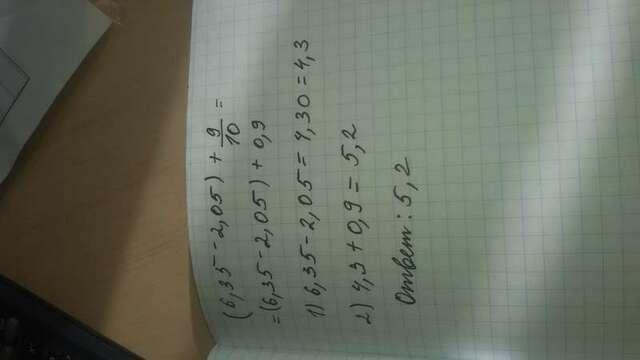 (6,35 - 2,05) + 9/10 =
= (6,35 - 2,05) + 0,9
1) 6,35 - 2,05 = 4,30 = 4,3
2) 4,3 + 0,9 = 5,2
Ответ: 5,2